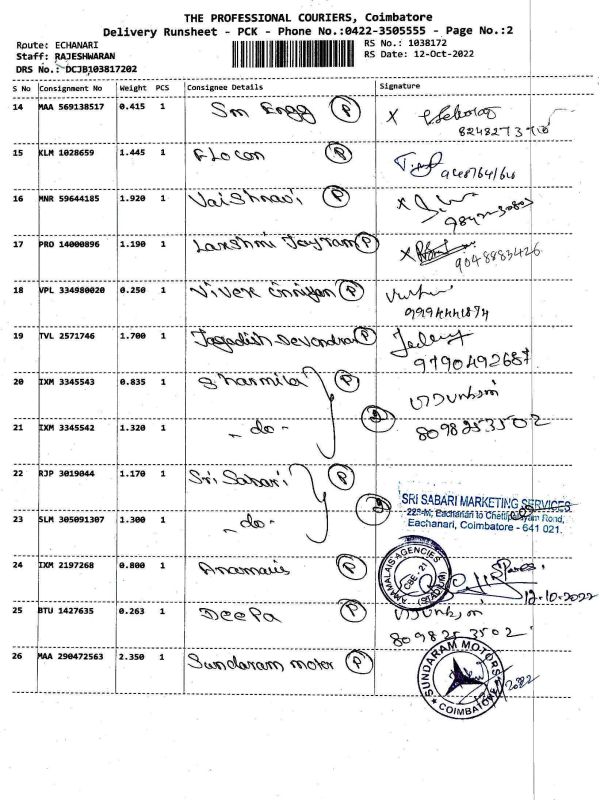 THE PROFESSIONAL COURIERS, Coimbatore
Delivery Runsheet - PCK - Phone No.:0422-3505555 - Page No.:2
Route: ECHANARI RS No.: 1038172
Staff: RAJESHWARAN RS Date: 12-Oct-2022
DRS No.: DCJB103817202
S No Consignment No Weight PCS Consignee Details Signature
14 MAA 569138517 0.415 1 Sm Engg P X
15 KLM 1028659 1.445 1 Flocon P
16 MNR 59644185 1.920 1 Vaishnavi P X
17 PRO 14000896 1.190 1 Laxshmi Jayram P X
9048883426
18 VPL 334980020 0.250 1 Vivek P
9994441874
19 TVL 2571746 1.700 1 Jagadish Devendran P
9790492687
20 IXM 3345543 0.835 1 Sharmila P
21 IXM 3345542 1.320 1 - do - 2
8098253502
22 RJP 3019044 1.170 1 Sri Sabari P
SRI SABARI MARKETING SERVICES
23 SLM 305091307 1.300 1 - do - 2
Eachanari, Coimbatore - 641 021.
24 IXM 2197268 0.800 1 P
12.10.2022
25 BTU 1427635 0.263 1 Deepa P
8098253502
26 MAA 290472563 2.350 1 Sundaram motor P
SUNDARAM MOTORS
COIMBATORE